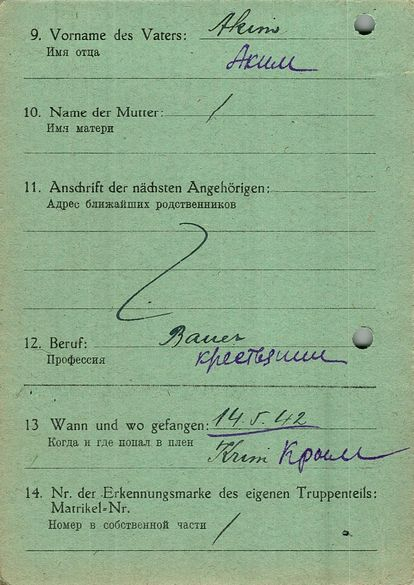 9. Vorname des Vaters: Akim
Имя отца Аким
10. Name der Mutter: /
Имя матери
11. Anschrift der nächsten Angehörigen:
Адрес ближайших родственников
12. Beruf: Bauer
Профессия крестьянин
13 Wann und wo gefangen: 14.5.42
Когда и где попал в плен Krim Крым
14. Nr. der Erkennungsmarke des eigenen Truppenteils:
Matrikel-Nr.
Номер в собственной части /